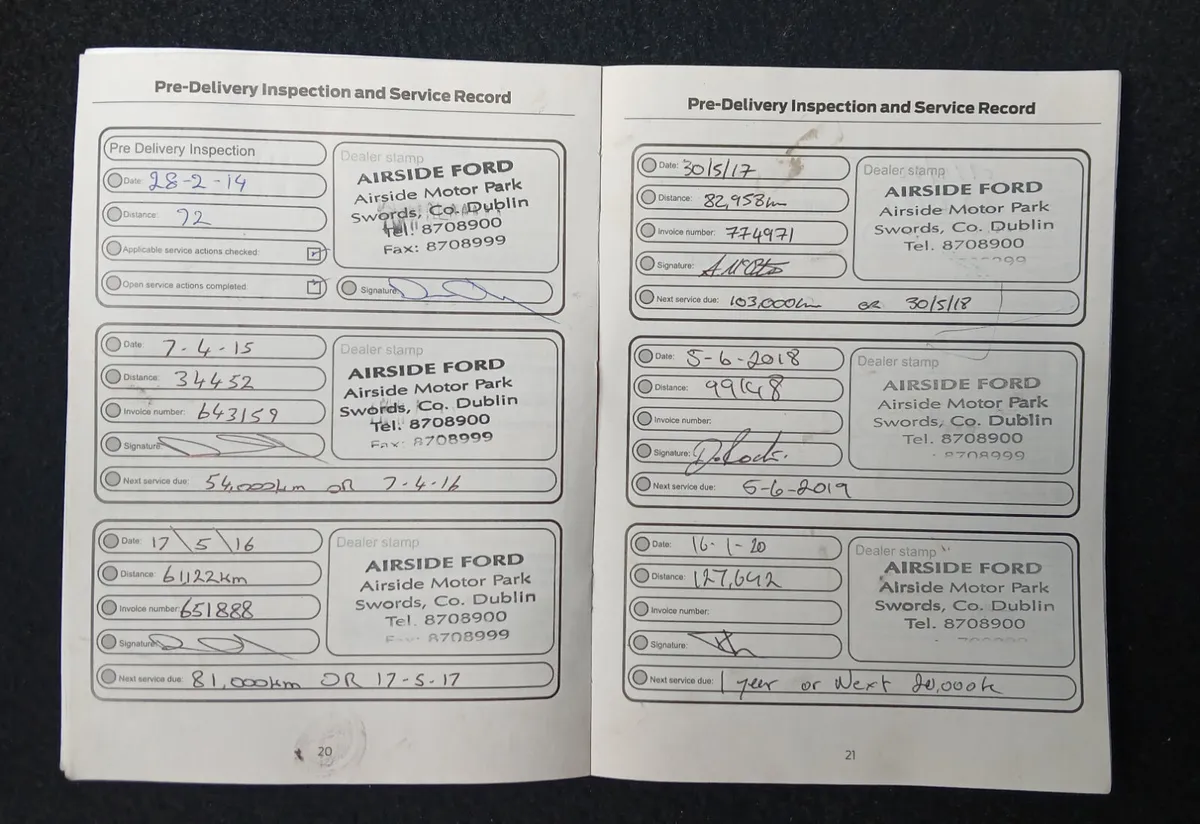 Pre-Delivery Inspection and Service Record
Pre Delivery Inspection
Date: 28-2-14
Distance: 92
Applicable service actions checked:
Open service actions completed:
Dealer stamp
AIRSIDE FORD
Airside Motor Park
Swords, Co. Dublin
Tel. 8708900
Fax: 8708999
Signature:
Date: 7-4-15
Distance: 34452
Invoice number: 643159
Signature:
Dealer stamp
AIRSIDE FORD
Airside Motor Park
Swords, Co. Dublin
Tel. 8708900
Fax: 8708999
Next service due: 54,000km OR 7-4-16
Date: 17\5\16
Distance: 61,122km
Invoice number: 651888
Signature:
Dealer stamp
AIRSIDE FORD
Airside Motor Park
Swords, Co. Dublin
Tel. 8708900
Fax: 8708999
Next service due: 81,000km OR 17-5-17
20
Pre-Delivery Inspection and Service Record
Date: 30/5/17
Distance: 82,958km
Invoice number: 774971
Signature:
Dealer stamp
AIRSIDE FORD
Airside Motor Park
Swords, Co. Dublin
Tel. 8708900
Next service due: 103,000km OR 30/5/18
Date: 5-6-2018
Distance: 99148
Invoice number:
Signature:
Dealer stamp
AIRSIDE FORD
Airside Motor Park
Swords, Co. Dublin
Tel. 8708900
8708999
Next service due: 5-6-2019
Date: 16-1-20
Distance: 127,642
Invoice number:
Signature:
Dealer stamp
AIRSIDE FORD
Airside Motor Park
Swords, Co. Dublin
Tel. 8708900
Next service due: 1 year or Next 20,000k
21